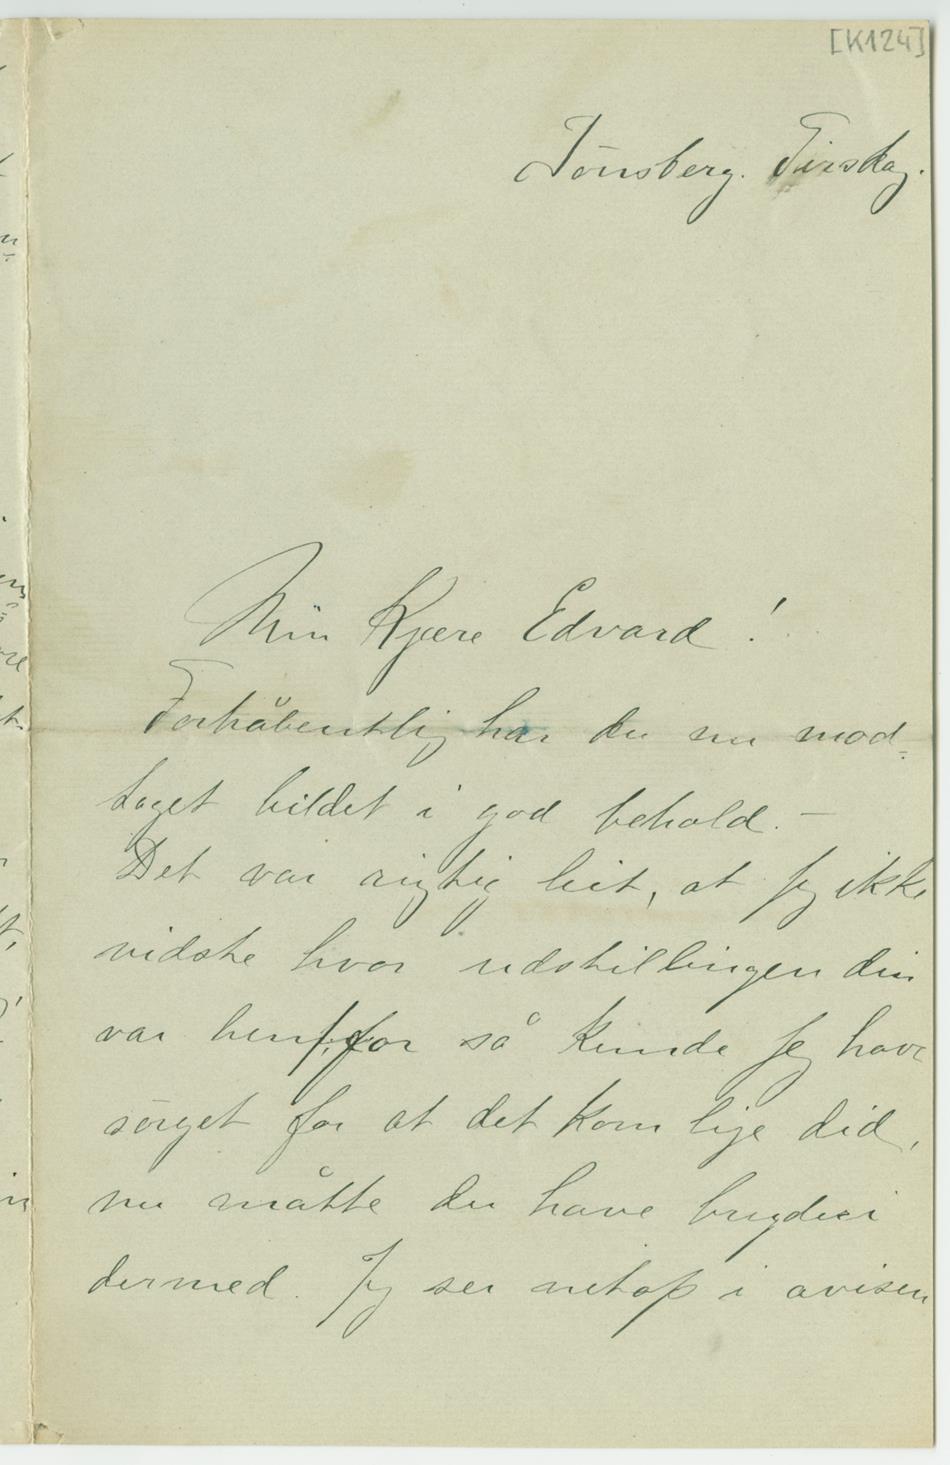 [K124]
Tönsberg. Tirsdag.
Min Kjære Edvard!
Forhåbentlig har du nu mod-
taget bildet i god behold. –
Det var rigtig leit, at jeg ikke
vidste hvor udstillingen din
var hen, for så kunde jeg have
sörget for at det kom lige did,
nu måtte du have bryderi
dermed. Jeg ser netop i avisen